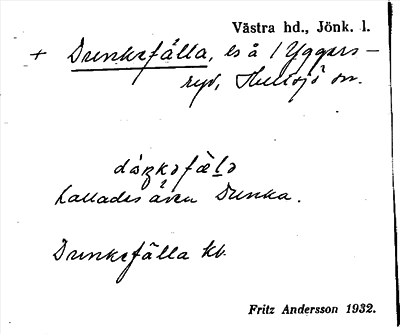 Västra hd., Jönk. l.
+ Drinkefälla, ls å 1 Yggers-
ryd, Hultsjö sn.
dáŋkəfælə
kallades även Dunka.
Drunkefälla kb.
Fritz Andersson 1932.